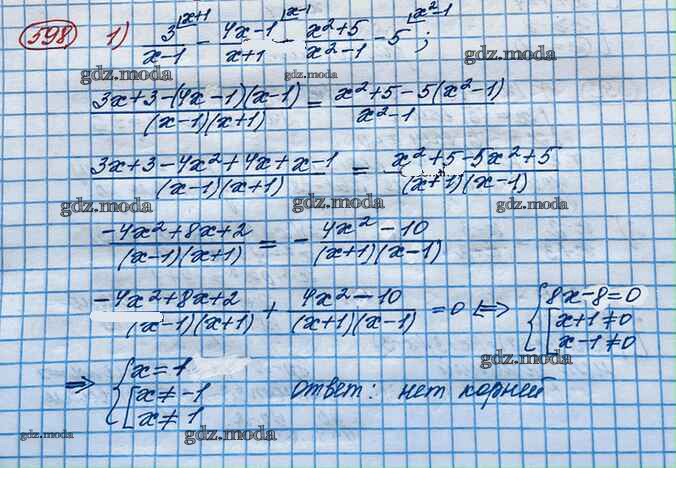 598 1) 3/(x-1) |x+1 - (4x-1)/(x+1) |x-1 - (x²+5)/(x²-1) - 5 |x²-1 ;
gdz.moda gdz.moda gdz.moda
(3x+3-(4x-1)(x-1))/((x-1)(x+1)) = (x²+5-5(x²-1))/(x²-1)
gdz.moda gdz.moda
(3x+3-4x²+4x+x-1)/((x-1)(x+1)) = (x²+5-5x²+5)/((x+1)(x-1))
gdz.moda gdz.moda gdz.moda
(-4x²+8x+2)/((x-1)(x+1)) = -(4x²-10)/((x+1)(x-1))
(-4x²+8x+2)/((x-1)(x+1)) + (4x²-10)/((x+1)(x-1)) = 0 <=> { 8x-8=0 [ x+1≠0 x-1≠0
gdz.moda
=> { x=1 [ x≠-1 x≠1 ответ: нет корней
gdz.moda gdz.moda gdz.moda